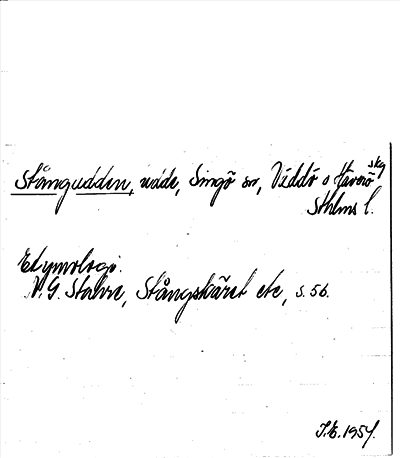 Stångudden, udde, Singö sn, Väddö o Häverö skg
Sthlms l.
Etymologi.
N. G. Stahre, Stångskäret etc, s. 56.
J.E. 1954.